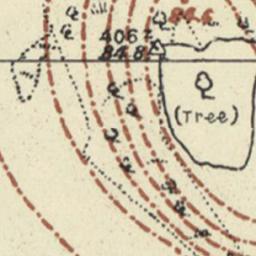 84.6
406
84.8
(Tree)